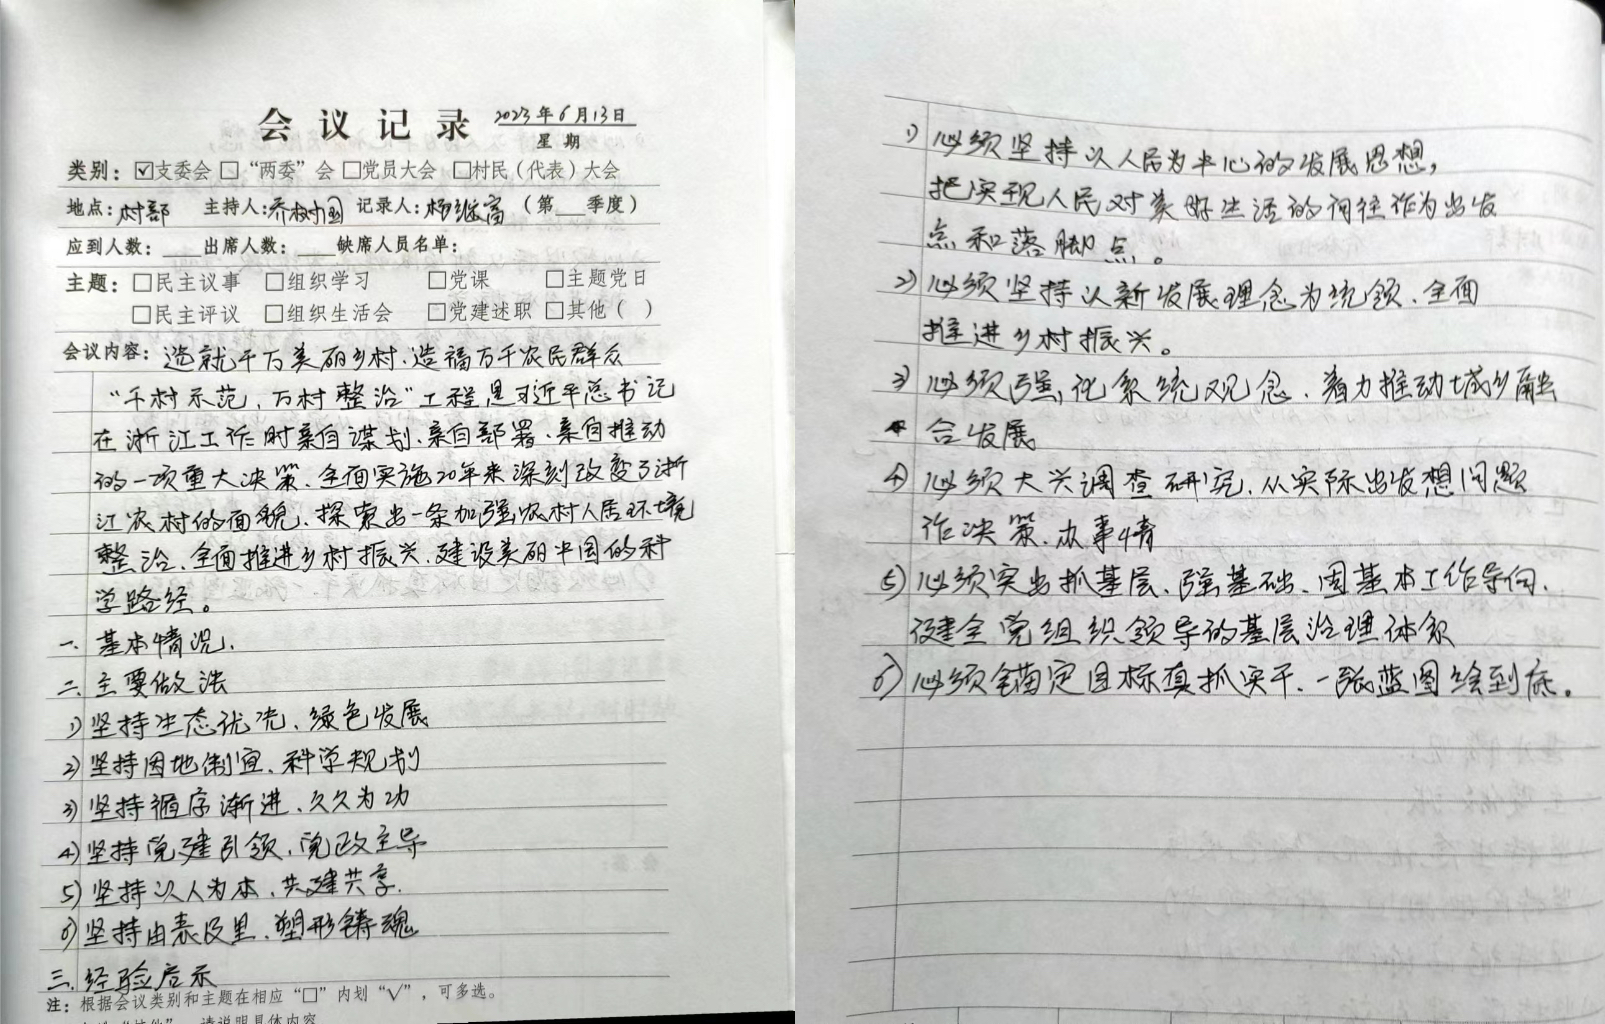 会议记录 2023年6月13日
星期
类别：☑支委会 □“两委”会 □党员大会 □村民（代表）大会
地点：村部 主持人：乔树国 记录人：杨继高 （第__季度）
应到人数：____ 出席人数：____ 缺席人员名单：
主题：□民主议事 □组织学习 □党课 □主题党日
□民主评议 □组织生活会 □党建述职 □其他（ ）
会议内容：造就千万美丽乡村、造福万千农民群众
“千村示范，万村整治”工程是习近平总书记
在浙江工作时亲自谋划、亲自部署、亲自推动
的一项重大决策、全面实施20年来深刻改变了浙
江农村的面貌、探索出一条加强农村人居环境
整治、全面推进乡村振兴、建设美丽中国的科
学路径。
一、基本情况、
二、主要做法
1）坚持生态优先、绿色发展
2）坚持因地制宜、科学规划
3）坚持循序渐进、久久为功
4）坚持党建引领、党政主导
5）坚持以人为本、共建共享.
6）坚持由表及里、塑形铸魂
三、经验启示
注：根据会议类别和主题在相应“□”内划“√”，可多选。
1）必须坚持以人民为中心的发展思想，
把实现人民对美好生活的向往作为出发
点和落脚点。
2）必须坚持以新发展理念为统领、全面
推进乡村振兴。
3）必须强化系统观念、着力推动城乡融
合发展
4）必须大兴调查研究、从实际出发想问题
作决策、办事情
5）必须突出抓基层、强基础、固基本工作导向、
健全党组织领导的基层治理体系
6）必须锚定目标真抓实干、一张蓝图绘到底。